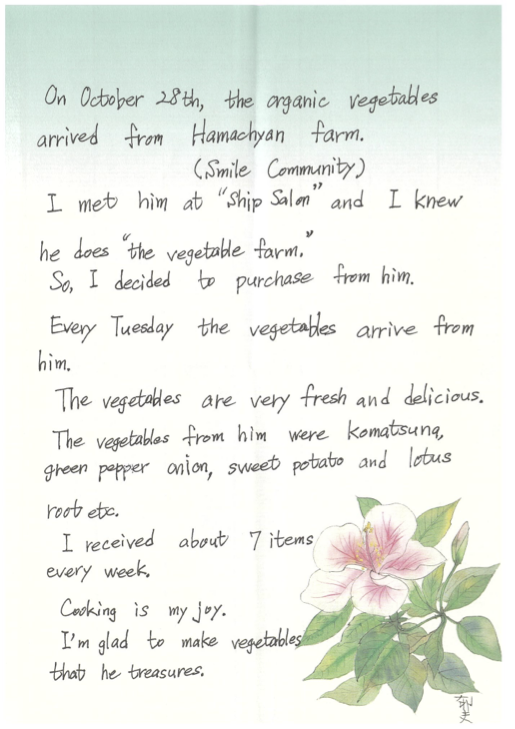 On October 28th, the organic vegetables
arrived from Hamachyan farm.
(Smile Community)
I met him at "Ship Salon" and I knew
he does "the vegetable farm."
So, I decided to purchase from him.
Every Tuesday the vegetables arrive from
him.
The vegetables are very fresh and delicious.
The vegetables from him were komatsuna,
green pepper onion, sweet potato and lotus
root etc.
I received about 7 items
every week.
Cooking is my joy.
I'm glad to make vegetables
that he treasures.